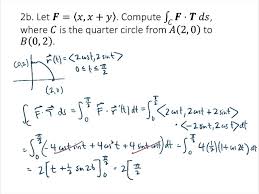 2b. Let F = ⟨x, x + y⟩. Compute ∫_C F · T ds,
where C is the quarter circle from A(2, 0) to
B(0, 2).
r⃗(t) = <2cost, 2sint>
(0,2)
0 ≤ t ≤ π/2
(2,0)
∫_C F⃗ · T⃗ ds = ∫_0^{π/2} F⃗ · r⃗'(t) dt = ∫_0^{π/2} <2cost, 2cost + 2sint>
· <-2sint, 2cost> dt
= ∫_0^{π/2} (-4costsint + 4cos²t + 4sintcost) dt = ∫_0^{π/2} 4(1/2)(1+cos2t) dt
= 2[t + 1/2 sin2t]_0^{π/2} = 2[π/2